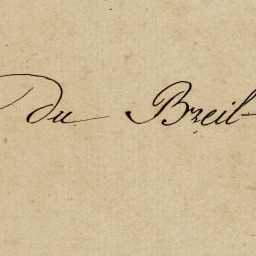 du Breil